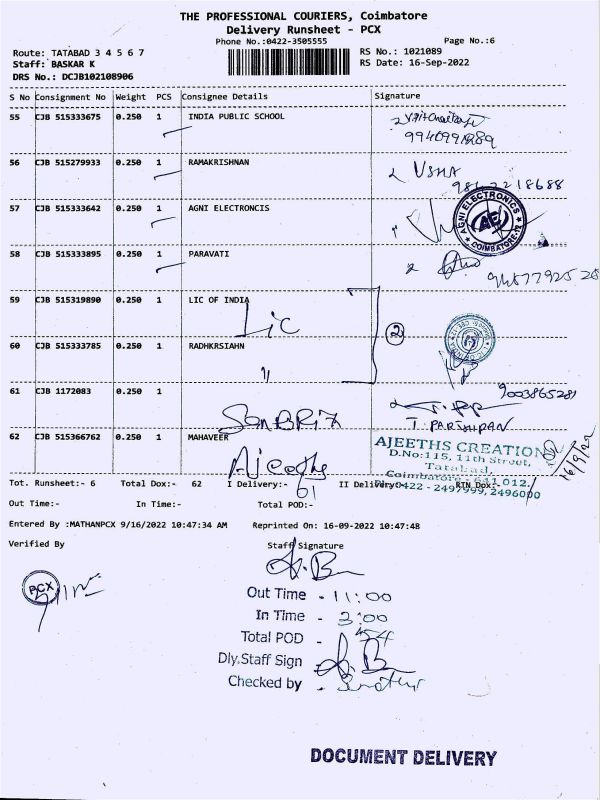 THE PROFESSIONAL COURIERS, Coimbatore
Delivery Runsheet - PCX
Phone No.:0422-3505555 Page No.:6
Route: TATABAD 3 4 5 6 7 RS No.: 1021089
Staff: BASKAR K RS Date: 16-Sep-2022
DRS No.: DCJB102108906
S No Consignment No Weight PCS Consignee Details Signature
55 CJB 515333675 0.250 1 INDIA PUBLIC SCHOOL
56 CJB 515279933 0.250 1 RAMAKRISHNAN
USHA
57 CJB 515333642 0.250 1 AGNI ELECTRONCIS
AGNI ELECTRONICS AE COIMBATORE-12
58 CJB 515333895 0.250 1 PARAVATI
59 CJB 515319890 0.250 1 LIC OF INDIA
LIC
2
60 CJB 515333785 0.250 1 RADHKRSIAHN
"
61 CJB 1172083 0.250 1
9003865281
T. PARTHIPAN
62 CJB 515366762 0.250 1 MAHAVEER
AJEETHS CREATION
D.No:115, 11th Street,
Tatabad,
Coimbatore - 641 012.
Ph: 0422 - 2497999, 2496000
16/9/22
Tot. Runsheet:- 6 Total Dox:- 62 I Delivery:- 61 II Delivery:- RTN Dox:- 1
Out Time:- In Time:- Total POD:-
Entered By :MATHANPCX 9/16/2022 10:47:34 AM Reprinted On: 16-09-2022 10:47:48
Verified By Staff Signature
PCX
Out Time - 11:00
In Time - 3:00
Total POD - 454
Dly.Staff Sign
Checked by -
DOCUMENT DELIVERY